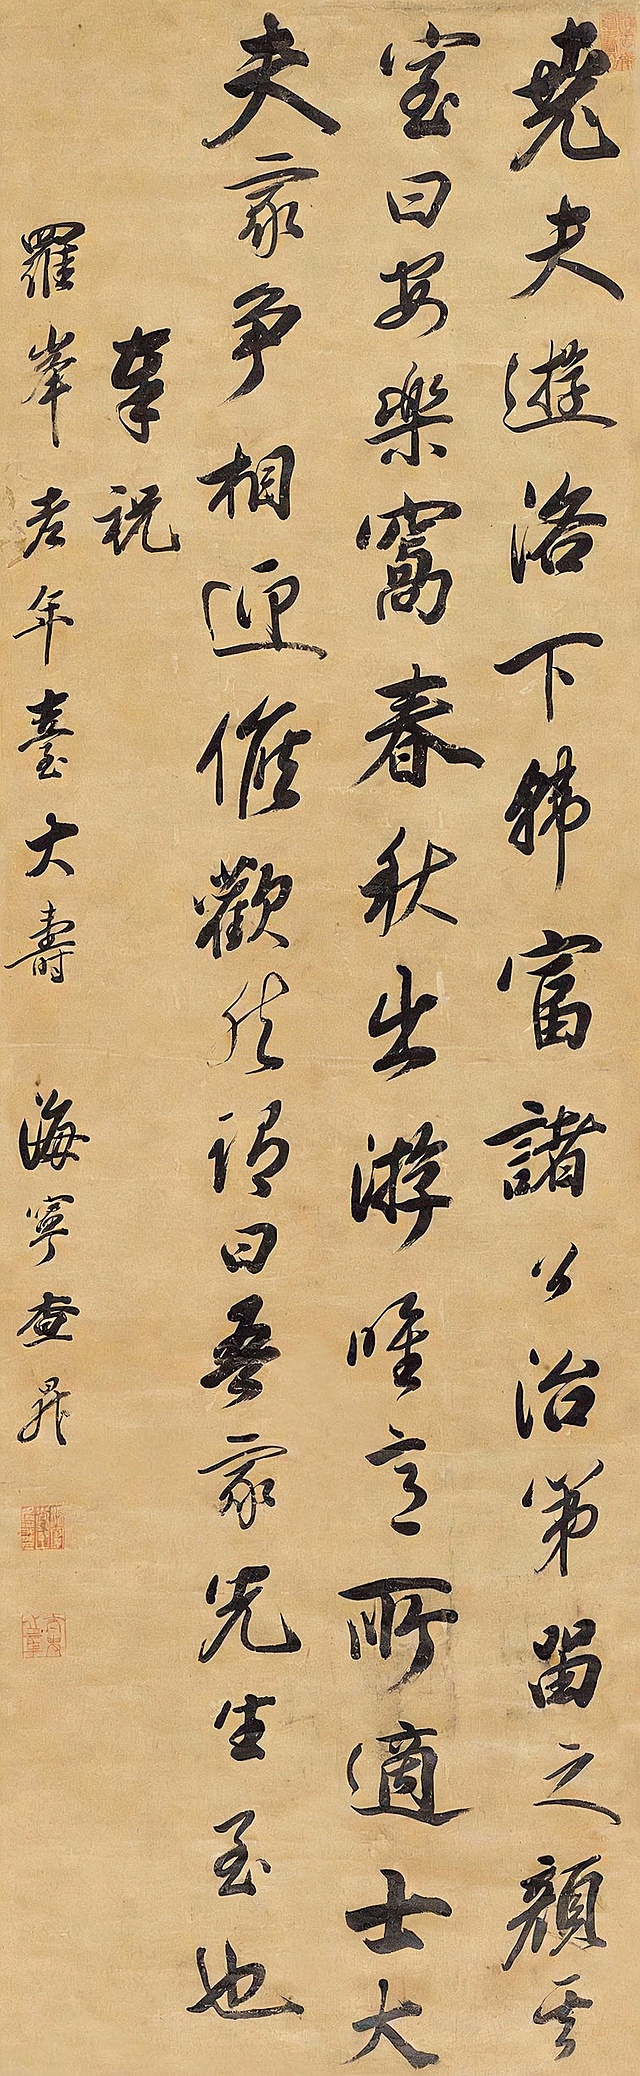 堯夫遊洛下韓富諸公治第留之顏其
室曰安樂窩春秋出游唯意所適士大
夫家爭相迎候歡然謂曰吾家先生至也
奉祝
羅峯老年臺大壽 海寧查昇